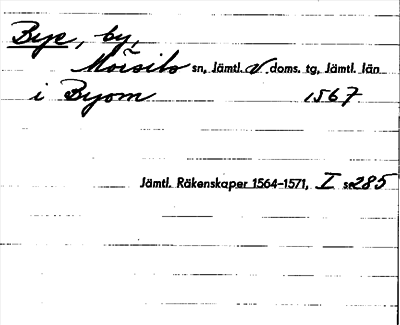 Bye, by,
Morsils sn, Jämtl. V. doms. tg, Jämtl. län
i Byom 1567
Jämtl. Räkenskaper 1564-1571, I s. 285